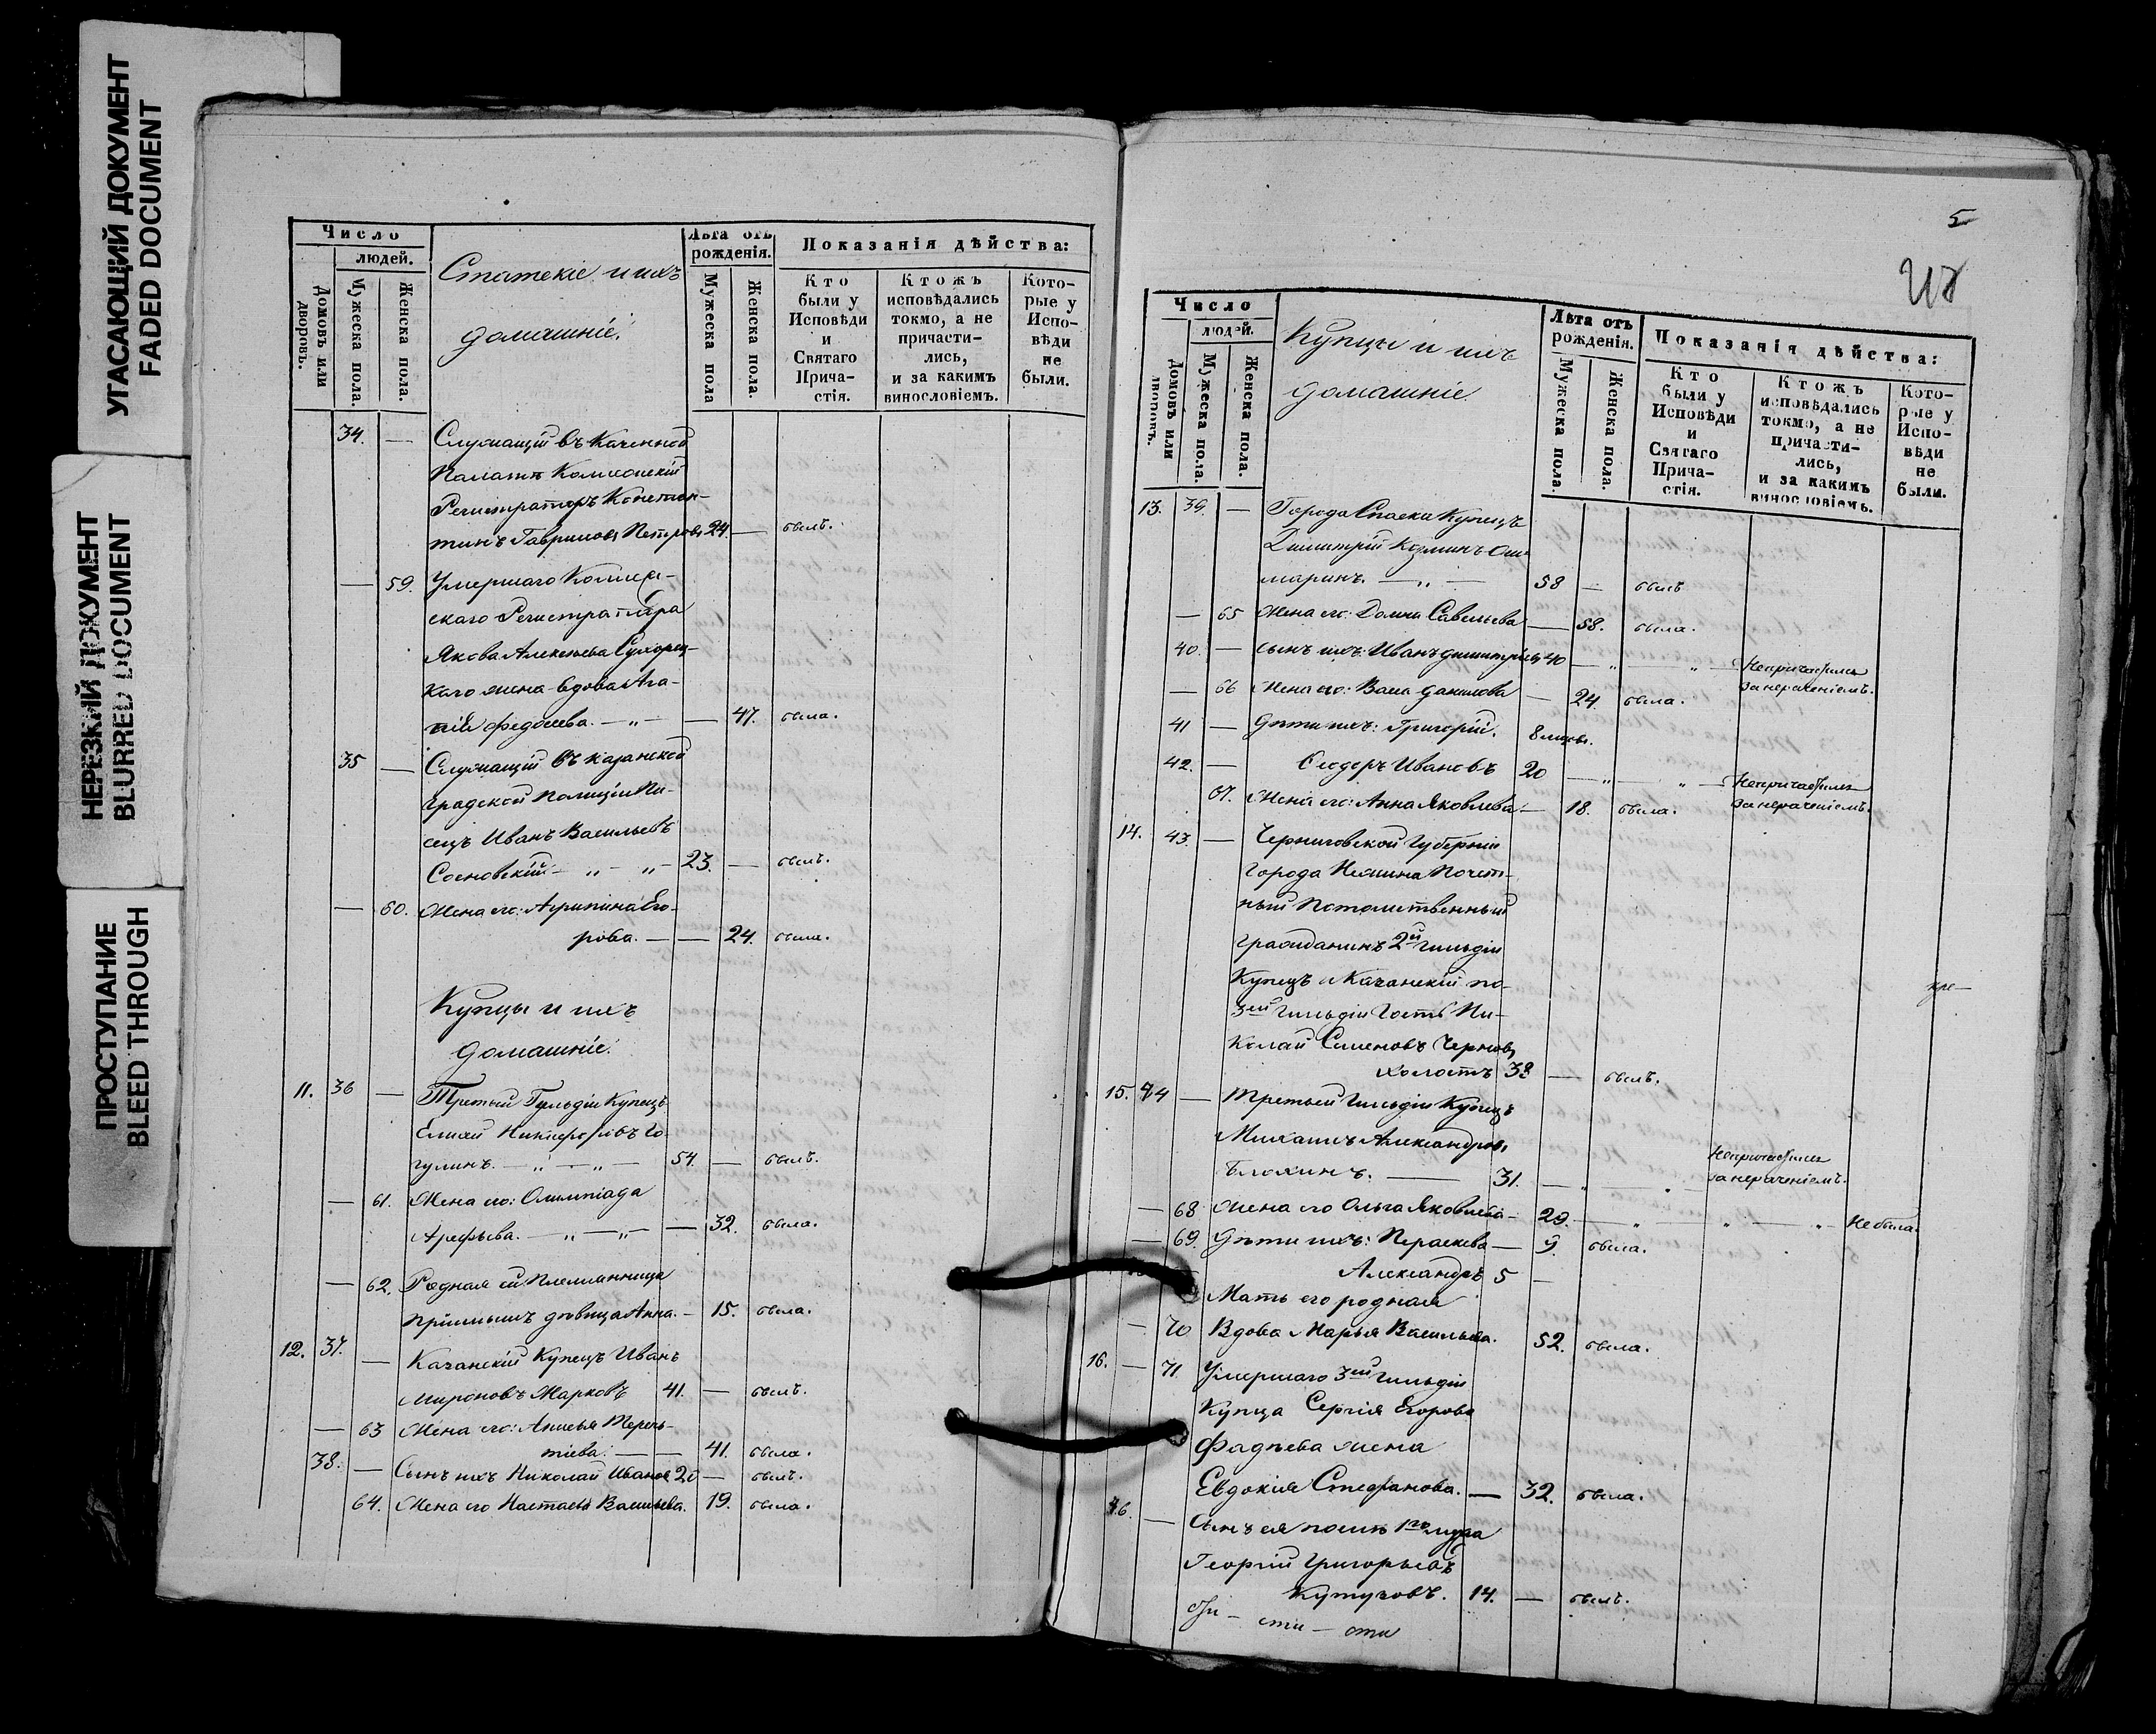 УГАСАЮЩИЙ ДОКУМЕНТ
FADED DOCUMENT
НЕРЕЗКИЙ ДОКУМЕНТ
BLURRED DOCUMENT
ПРОСТУПАНИЕ
BLEED THROUGH
Число
людей.
Домовъ или дворовъ.
Мужеска пола.
Женска пола.
Статскіе и ихъ
домашніе.
Лѣта отъ рожденія.
Мужеска пола
Женска пола.
Показанія дѣйства:
Кто были у Исповѣди и Святаго Прича- стія.
Ктожъ исповѣдались токмо, а не причасти- лись, и за какимъ винословіемъ.
Кото- рые у Испо- вѣди не были.
34. — Служащій въ Казенной
Палатѣ Коллежскій
Регистраторъ Констан-
тинъ Гавриловъ Петровъ 24. — былъ.
— 59. Умершаго Коллеж-
скаго Регистратора
Якова Алексѣева
каго жена вдова Ага-
пія Федосеева. — „ — — 47. была.
35 — Служащій въ Казанской
Градской Полиціи Пи-
сецъ Иванъ Васильевъ
Сосновскій — „ — „ — 23. — былъ.
— 60. Жена его: Агрипина Его-
рова. — — 24. была.
Купцы и ихъ
домашніе.
11. 36 — Третьей Гильдіи Купецъ
Елисей Никифоровъ Го-
гулинъ. — „ — „ — 54. — былъ.
— 61. Жена его: Олимпіада
Арефьева. — „ — „ — — 32. была.
— 62. Родная ей племянница
пріимышъ дѣвица Анна. — 15. была.
12. 37. — Казанскій Купецъ Иванъ
Мироновъ Жарковъ 41. — былъ.
— 63 Жена его: Терень-
тіева. — — 41. была.
38. — Сынъ ихъ Николай Ивановъ 20 — былъ.
64. Жена его Настасья Васильева. 19. была.
5
Число
людей.
Домовъ или дворовъ.
Мужеска пола.
Женска пола.
Купцы и ихъ
домашніе.
Лѣта отъ рожденія.
Мужеска пола.
Женска пола.
Показанія дѣйства:
Кто были у Исповѣди и Святаго Прича- стія.
Ктожъ исповѣдались токмо, а не причасти- лись, и за какимъ винословіемъ.
Кото- рые у Испо- вѣди не были.
13. 39. — Города Спаска Купецъ
Димитрій Козминъ
маринъ. — „ — 58 — былъ
— 65 Жена его: Домна Савельева — 58. была.
40. — Сынъ ихъ: Иванъ Димитріевъ 40 — „ — „ — Непричастился
за нераченіемъ.
— 66 Жена его: Васса Данилова — 24. была.
41 — Дѣти ихъ: Григорій. 8 мцовъ.
42. — Ѳеодоръ Ивановъ 20 — „ — „ — Непричастился
67. Жена его: Анна Яковлева — 18. была. за нераченіемъ.
14. 43. — Черниговской Губерніи
Города Нежина Почет-
ный Потомственный
Гражданинъ 2й Гильдіи
Купецъ и Казанскій по
3ей Гильдіи Гость Ни-
колай Семеновъ Черновъ
холостъ 38 — былъ.
15. 44 — Третьей Гильдіи Купецъ
Михаилъ Александровъ
Блохинъ. — 31. — „ — „ — Непричастился
за нераченіемъ.
— 68 Жена его Ольга Яковлева — 29. — „ — „ — „ — Не была.
— 69. Дѣти ихъ: Параскева — 9. была.
Александръ 5 —
Мать его родная
— 70 Вдова Марья Васильева. 52. была.
16. — 71. Умершаго 3ей Гильдіи
Купца Сергія Егорова
Фадѣева жена
Евдокія Стефанова. — 32. была.
46. — Сынъ ея послѣ 1го мужа
Георгій Григорьевъ
Кутузовъ. 14. — былъ.